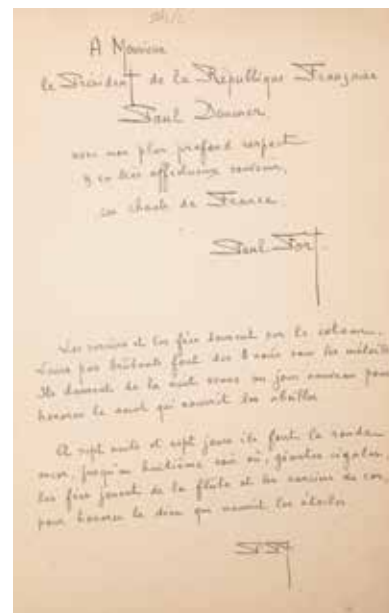 A Monsieur
le Président de la République Française
Paul Doumer
avec mon plus profond respect
& en très affectueux souvenir,
ces chants de France.
Paul Fort
Les sorciers et les fées dansent sur le coteau.
Leurs pas brûlants font des
Ils dansent de la nuit venue au jour nouveau pour
honorer le qui nourrit les abeilles
A sept nuits et sept jours ils font la ronde
encor, jusqu'au huitième soir où, géantes cigales,
les fées jouent de la flûte et les sorciers du cor,
pour honorer le dieu qui nourrit les étoiles